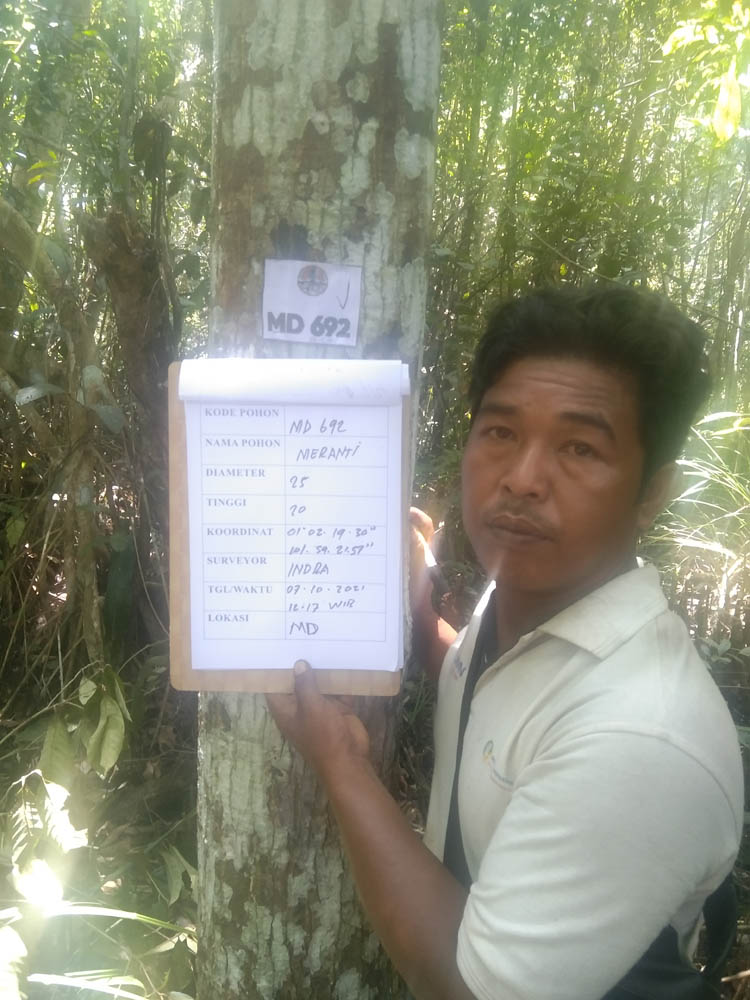 MD 692
KODE POHON MD 692
NAMA POHON MERANTI
DIAMETER 25
TINGGI 20
KOORDINAT 01°02.19.30"
101.59.21.51"
SURVEYOR INDRA
TGL/WAKTU 07.10.2021
12.17 WIB
LOKASI MD